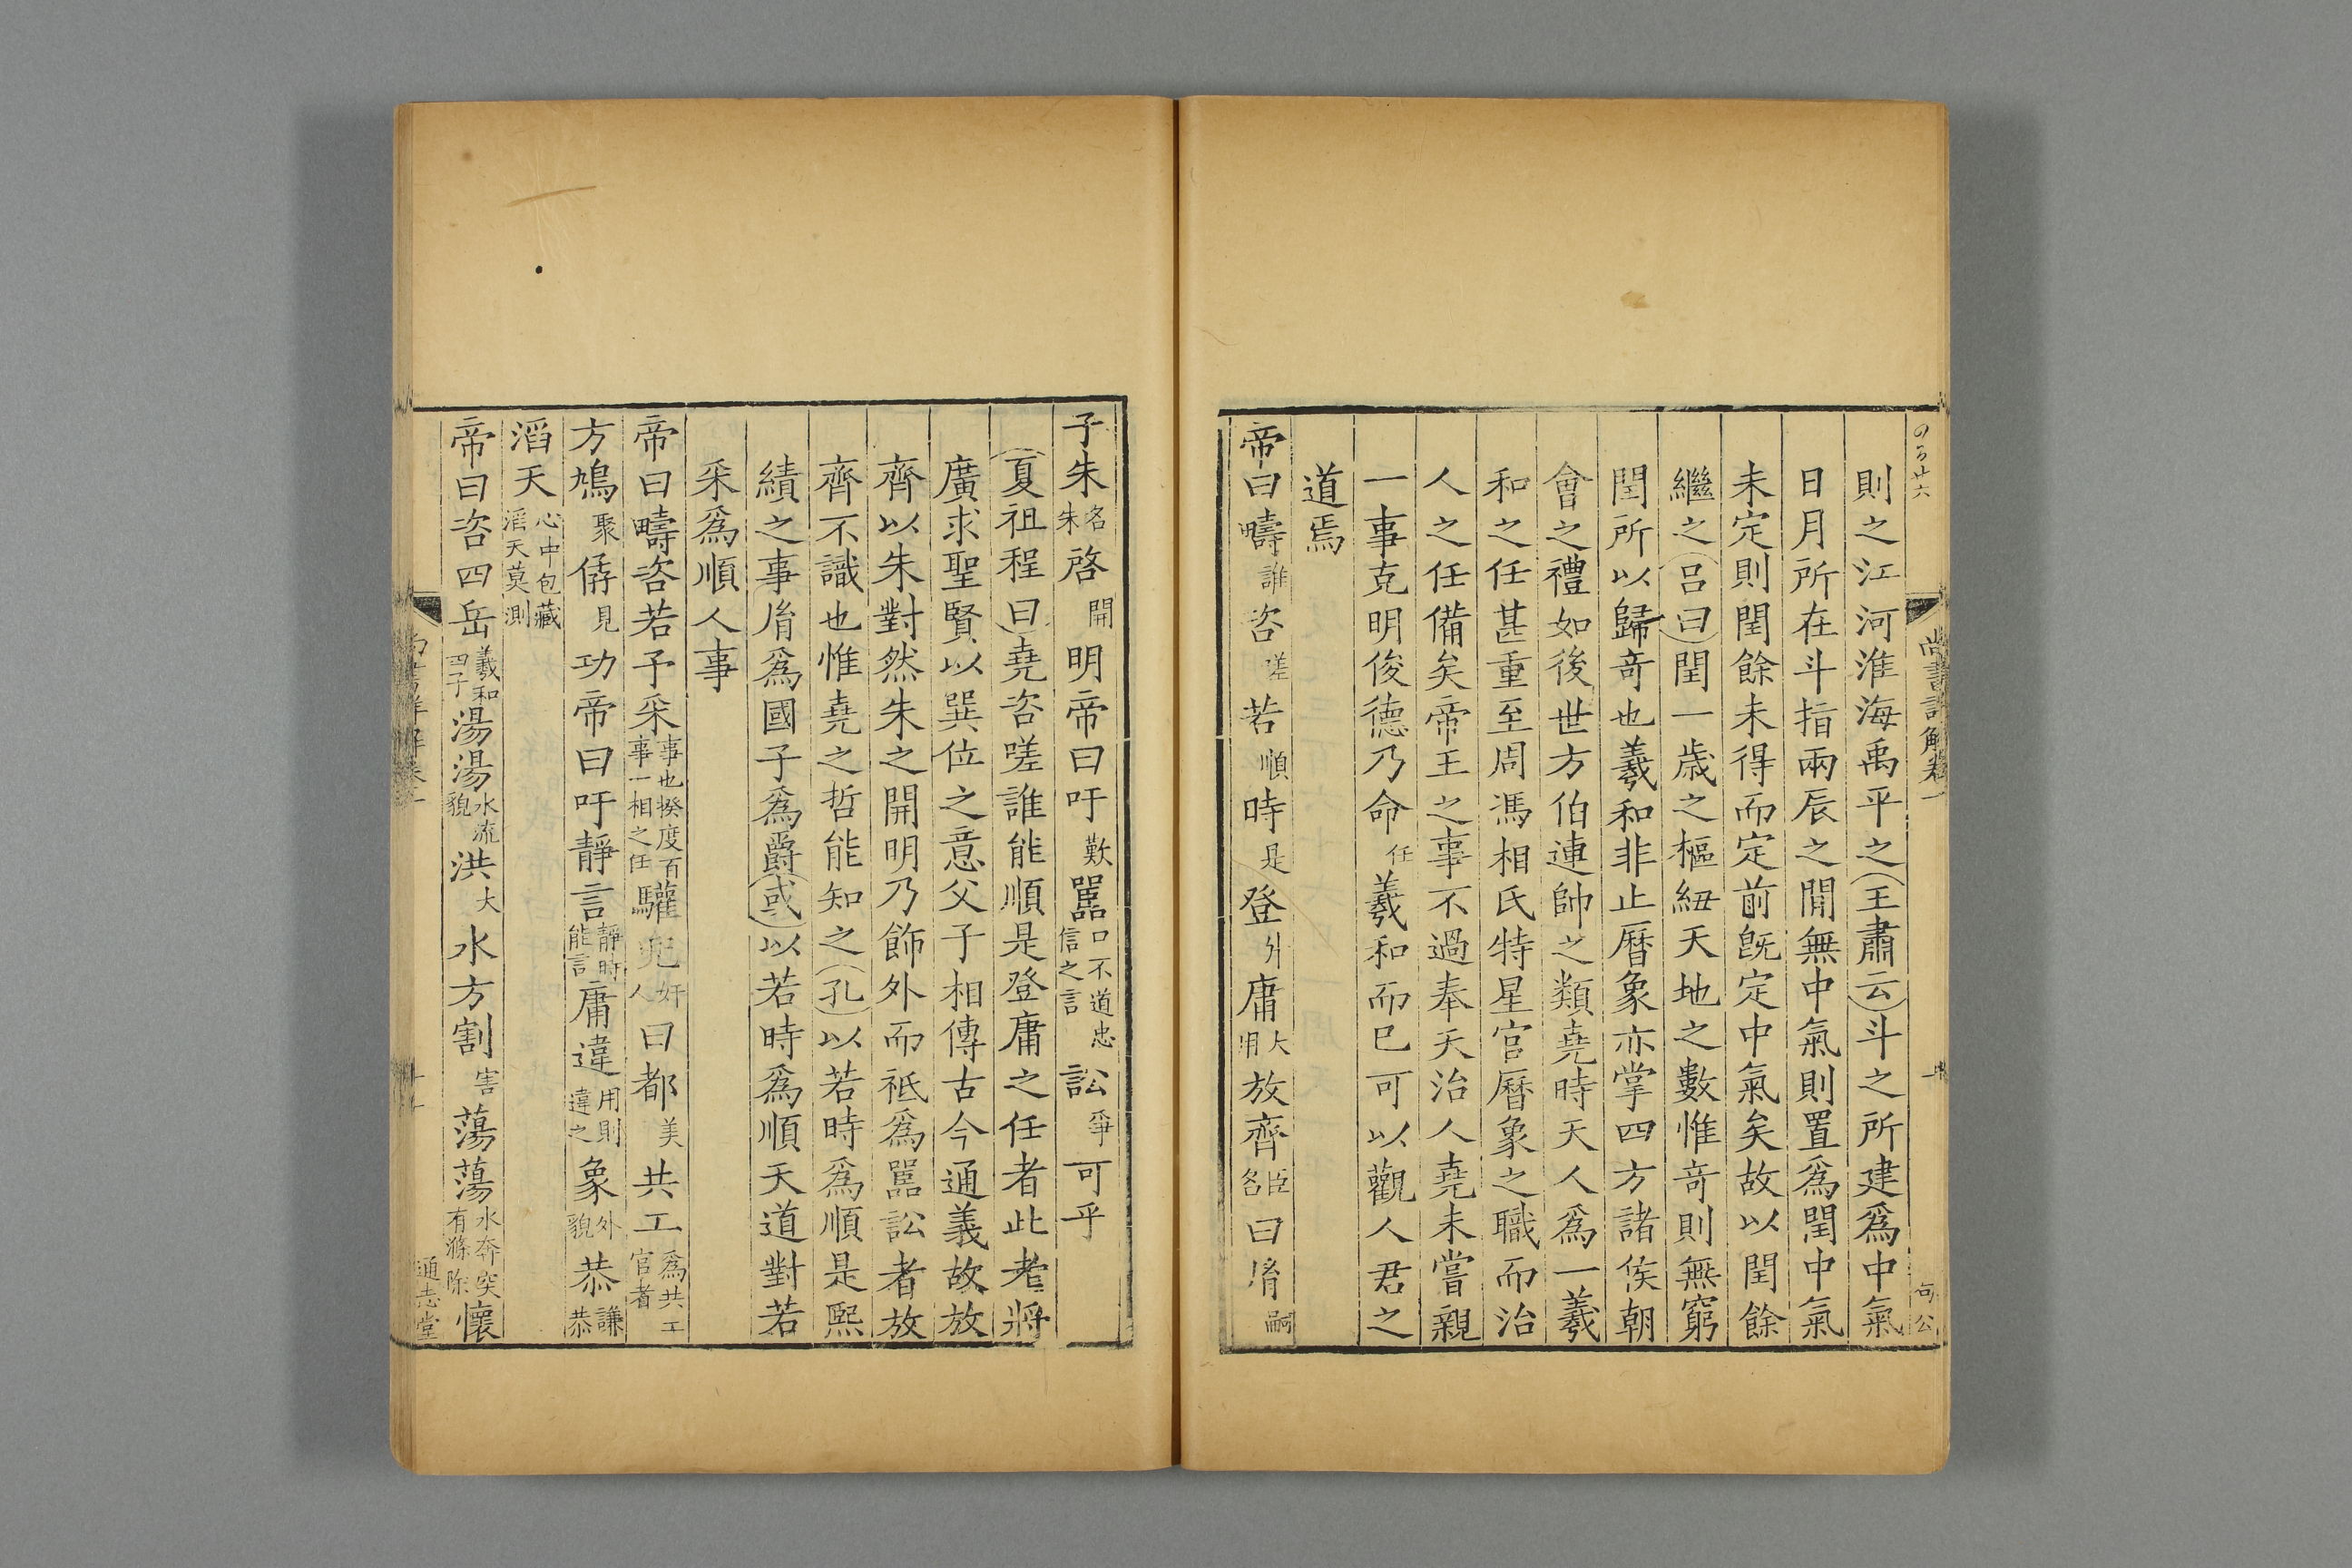 尚書詳解卷一
則之江河淮海禹平之王肅云斗之所建爲中氣
日月所在斗指兩辰之閒無中氣則置爲閏中氣
未定則閏餘未得而定前旣定中氣矣故以閏餘
繼之呂曰閏一歲之樞紐天地之數惟竒則無窮
閏所以歸竒也羲和非止曆象亦掌四方諸侯朝
會之禮如後世方伯連帥之類堯時天人爲一羲
和之任甚重至周馮相氏特星官曆象之職而治
人之任備矣帝王之事不過奉天治人堯未嘗親
一事克明俊德乃命任羲和而已可以觀人君之
道焉
帝曰疇誰咨嗟若順時是登升庸大用放齊臣名曰胤嗣
子朱名朱啓開明帝曰吁歎嚚口不道忠信之言訟爭可乎
夏祖程曰堯咨嗟誰能順是登庸之任者此老將
廣求聖賢以巽位之意父子相傳古今通義故放
齊以朱對然朱之開明乃飾外而祗爲嚚訟者放
齊不識也惟堯之哲能知之孔以若時爲順是熙
績之事胤爲國子爲爵或以若時爲順天道對若
采爲順人事
帝曰疇咨若予采事也揆度百事一相之任驩兜奸人曰都美共工爲共工官者
方鳩聚僝見功帝曰吁靜言靜時能言庸違用則違之象外貌恭謙恭
滔天心中包藏滔天莫測
帝曰咨四岳羲和四子湯湯水流貌洪大水方割害蕩蕩水奔突有滌除懷
通志堂